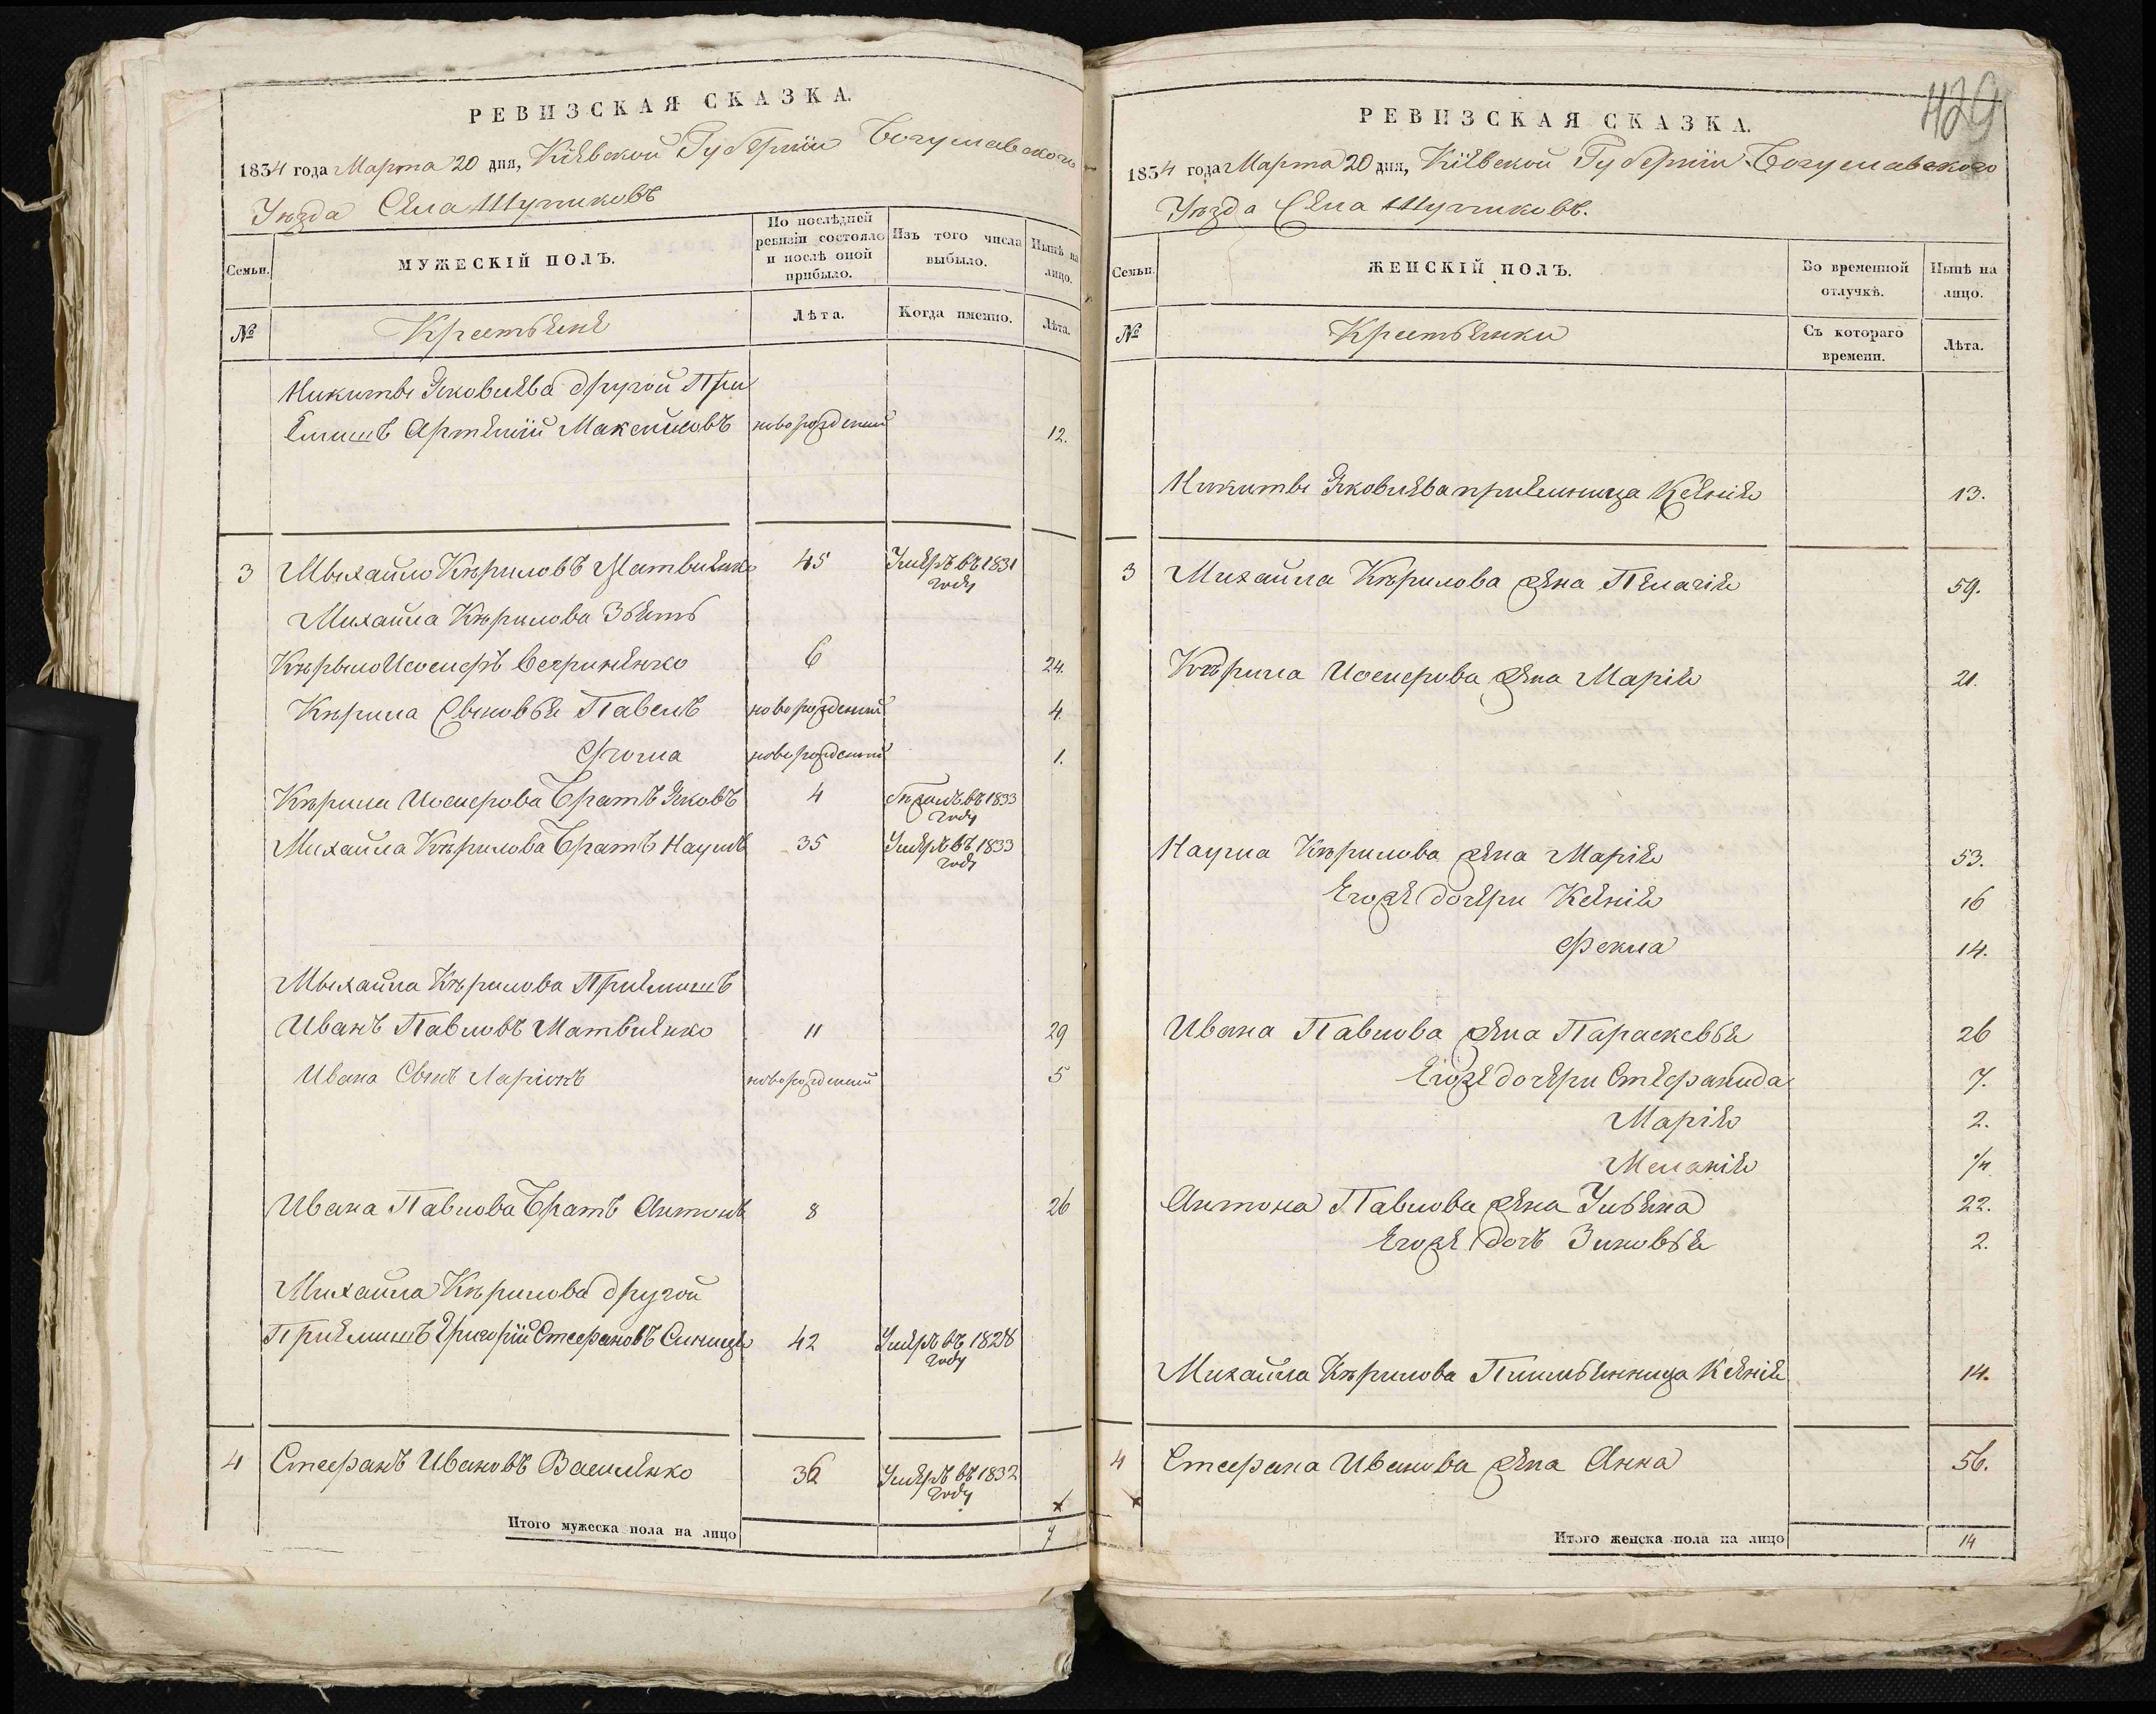 РЕВИЗСКАЯ СКАЗКА.
1834 года Марта 20 дня, Кіевской Губерніи Богуславского
Уѣзда Села Шупиковъ
Семьи.
МУЖЕСКІЙ ПОЛЪ.
По послѣдней ревизіи состояло и послѣ оной прибыло.
Изъ того числа выбыло.
Нынѣ на лицо.
№
Крестьяне
Лѣта.
Когда именно.
Лѣта.
Никиты Яковлева другой При
емышъ Артемій Максимовъ новорожденый 12.
3 Мыхайло Кѣриловъ Матвиенко 45 Умеръ въ 1831 году
Михайла Кѣрилова Зьять
Кѣрыло Иосифъ 6 24.
Кѣрила Сыновья Павелъ новорожденый 4.
Фома новорожденый 1.
Кѣрила Иосифова Братъ Яковъ 4 въ 1833 году
Михайла Кѣрилова Братъ Наумъ 35 Умеръ въ 1833 году
Мыхайла Кѣрилова Приемышъ
Иванъ Павловъ Матвиенко 11 29
Ивана Сынъ Ларионъ новорожденый 5
Ивана Павлова Братъ Антонъ 8 26
Михайла Кѣрилова другой
Приемышъ Григорій Стефановъ Синица 42 Умеръ въ 1828 году
4 Стефанъ Ивановъ Василенко 36 Умеръ въ 1832 году
Итого мужеска пола на лицо 7
429
РЕВИЗСКАЯ СКАЗКА.
1834 года Марта 20 дня, Кіевской Губерніи Богуславского
Уѣзда Села Шупиковъ.
Семьи.
ЖЕНСКІЙ ПОЛЪ.
Во временной отлучкѣ.
Нынѣ на лицо.
№
Крестьянки
Съ котораго времени.
Лѣта.
Никиты Яковлева приемница Ксенія 13.
3 Михайла Кѣрилова жена Пелагія 59.
Кѣрила Иосифова жена Марія 21.
Наума Кѣрилова жена Марія 53.
Егоже дочери Ксенія 16
Фекла 14.
Ивана Павлова жена Параскевья 26
Егоже дочери Стефанида 7.
Марія 2.
Меланія
Антона Павлова жена Ульяна 22.
Егоже дочь Зиновья 2.
Михайла Кѣрилова Ксенія 14.
4 Стефана Иванова жена Анна 56.
Итого женска пола на лицо 14